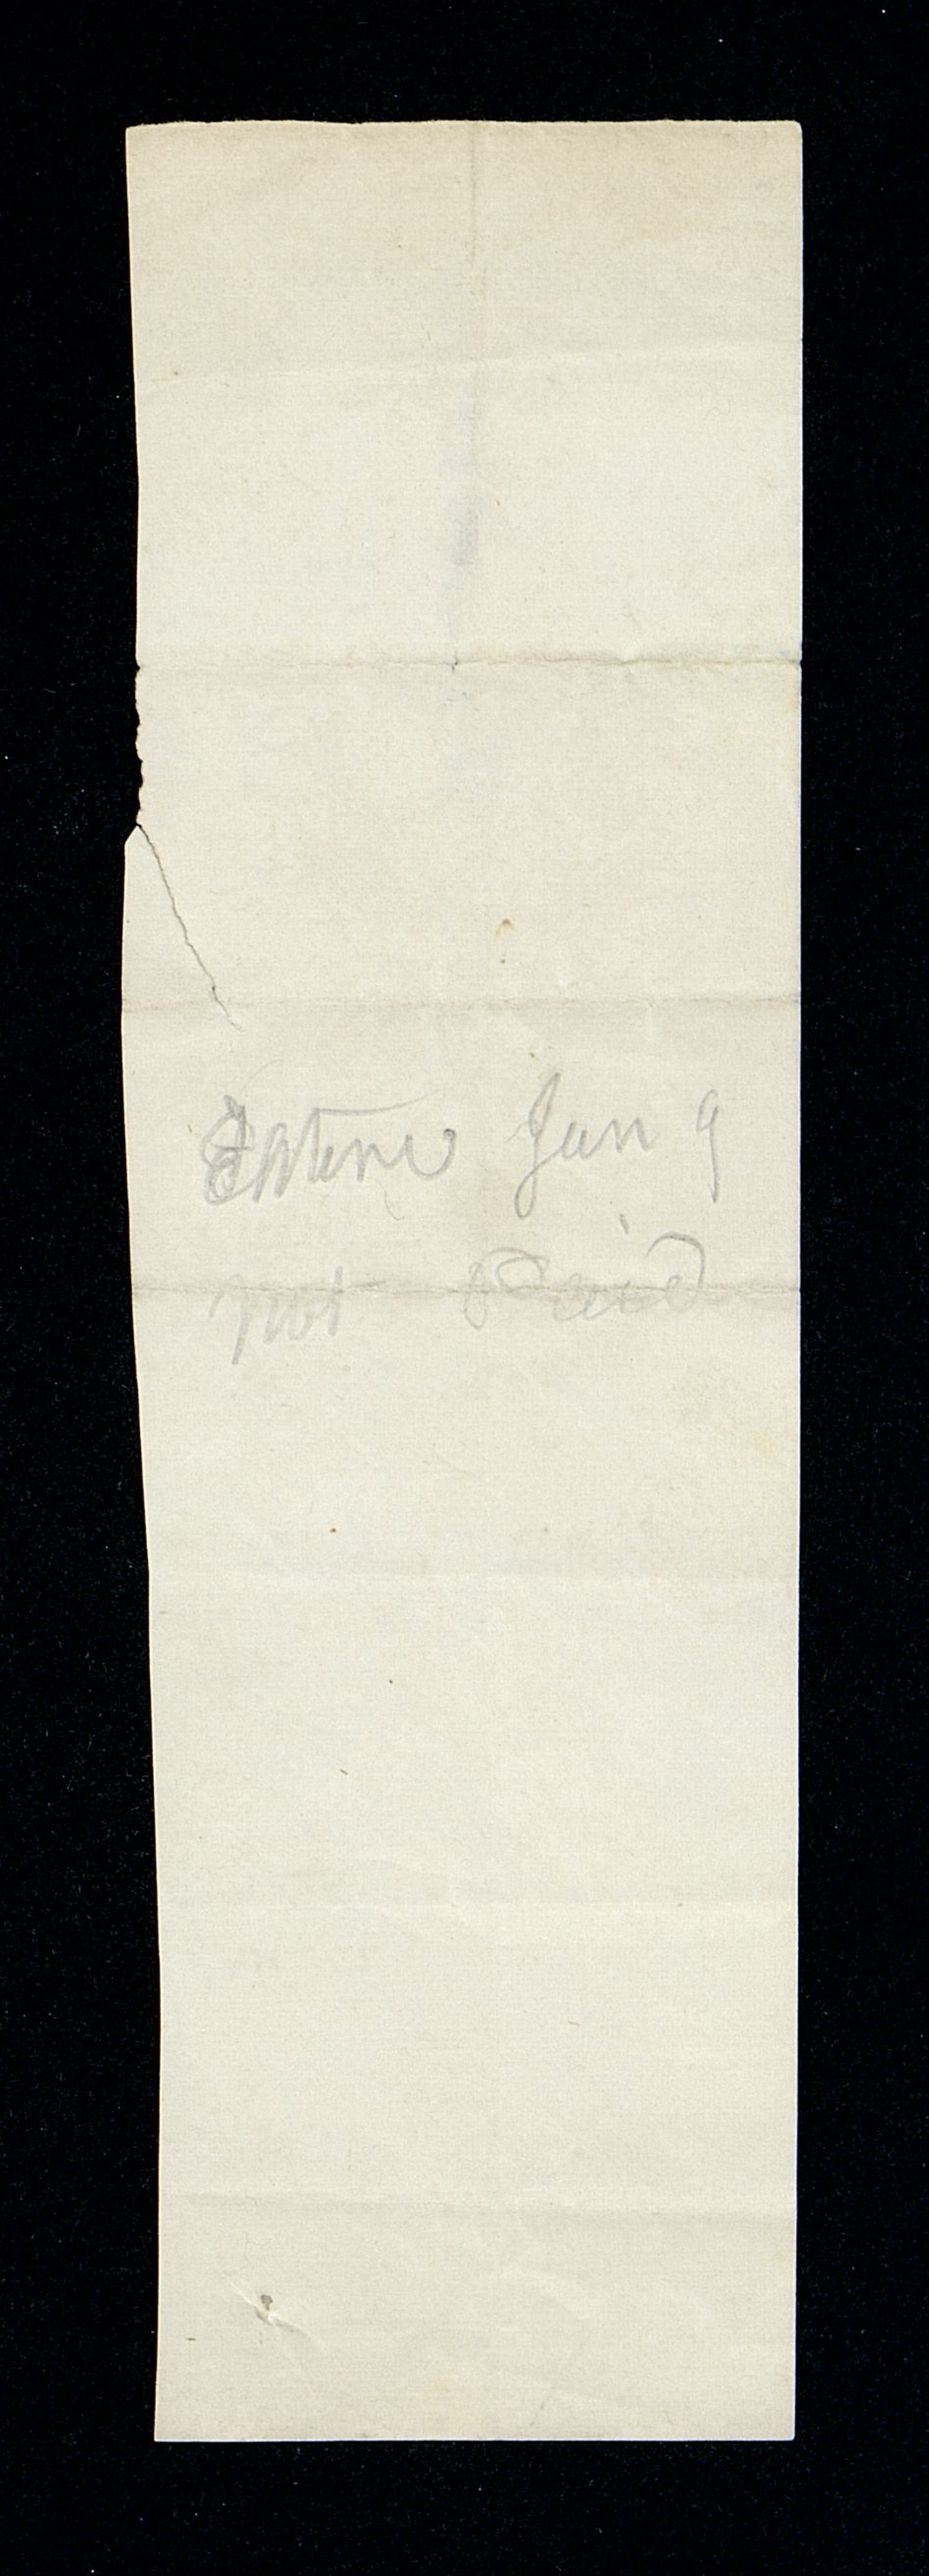 Jan 9
not Paid